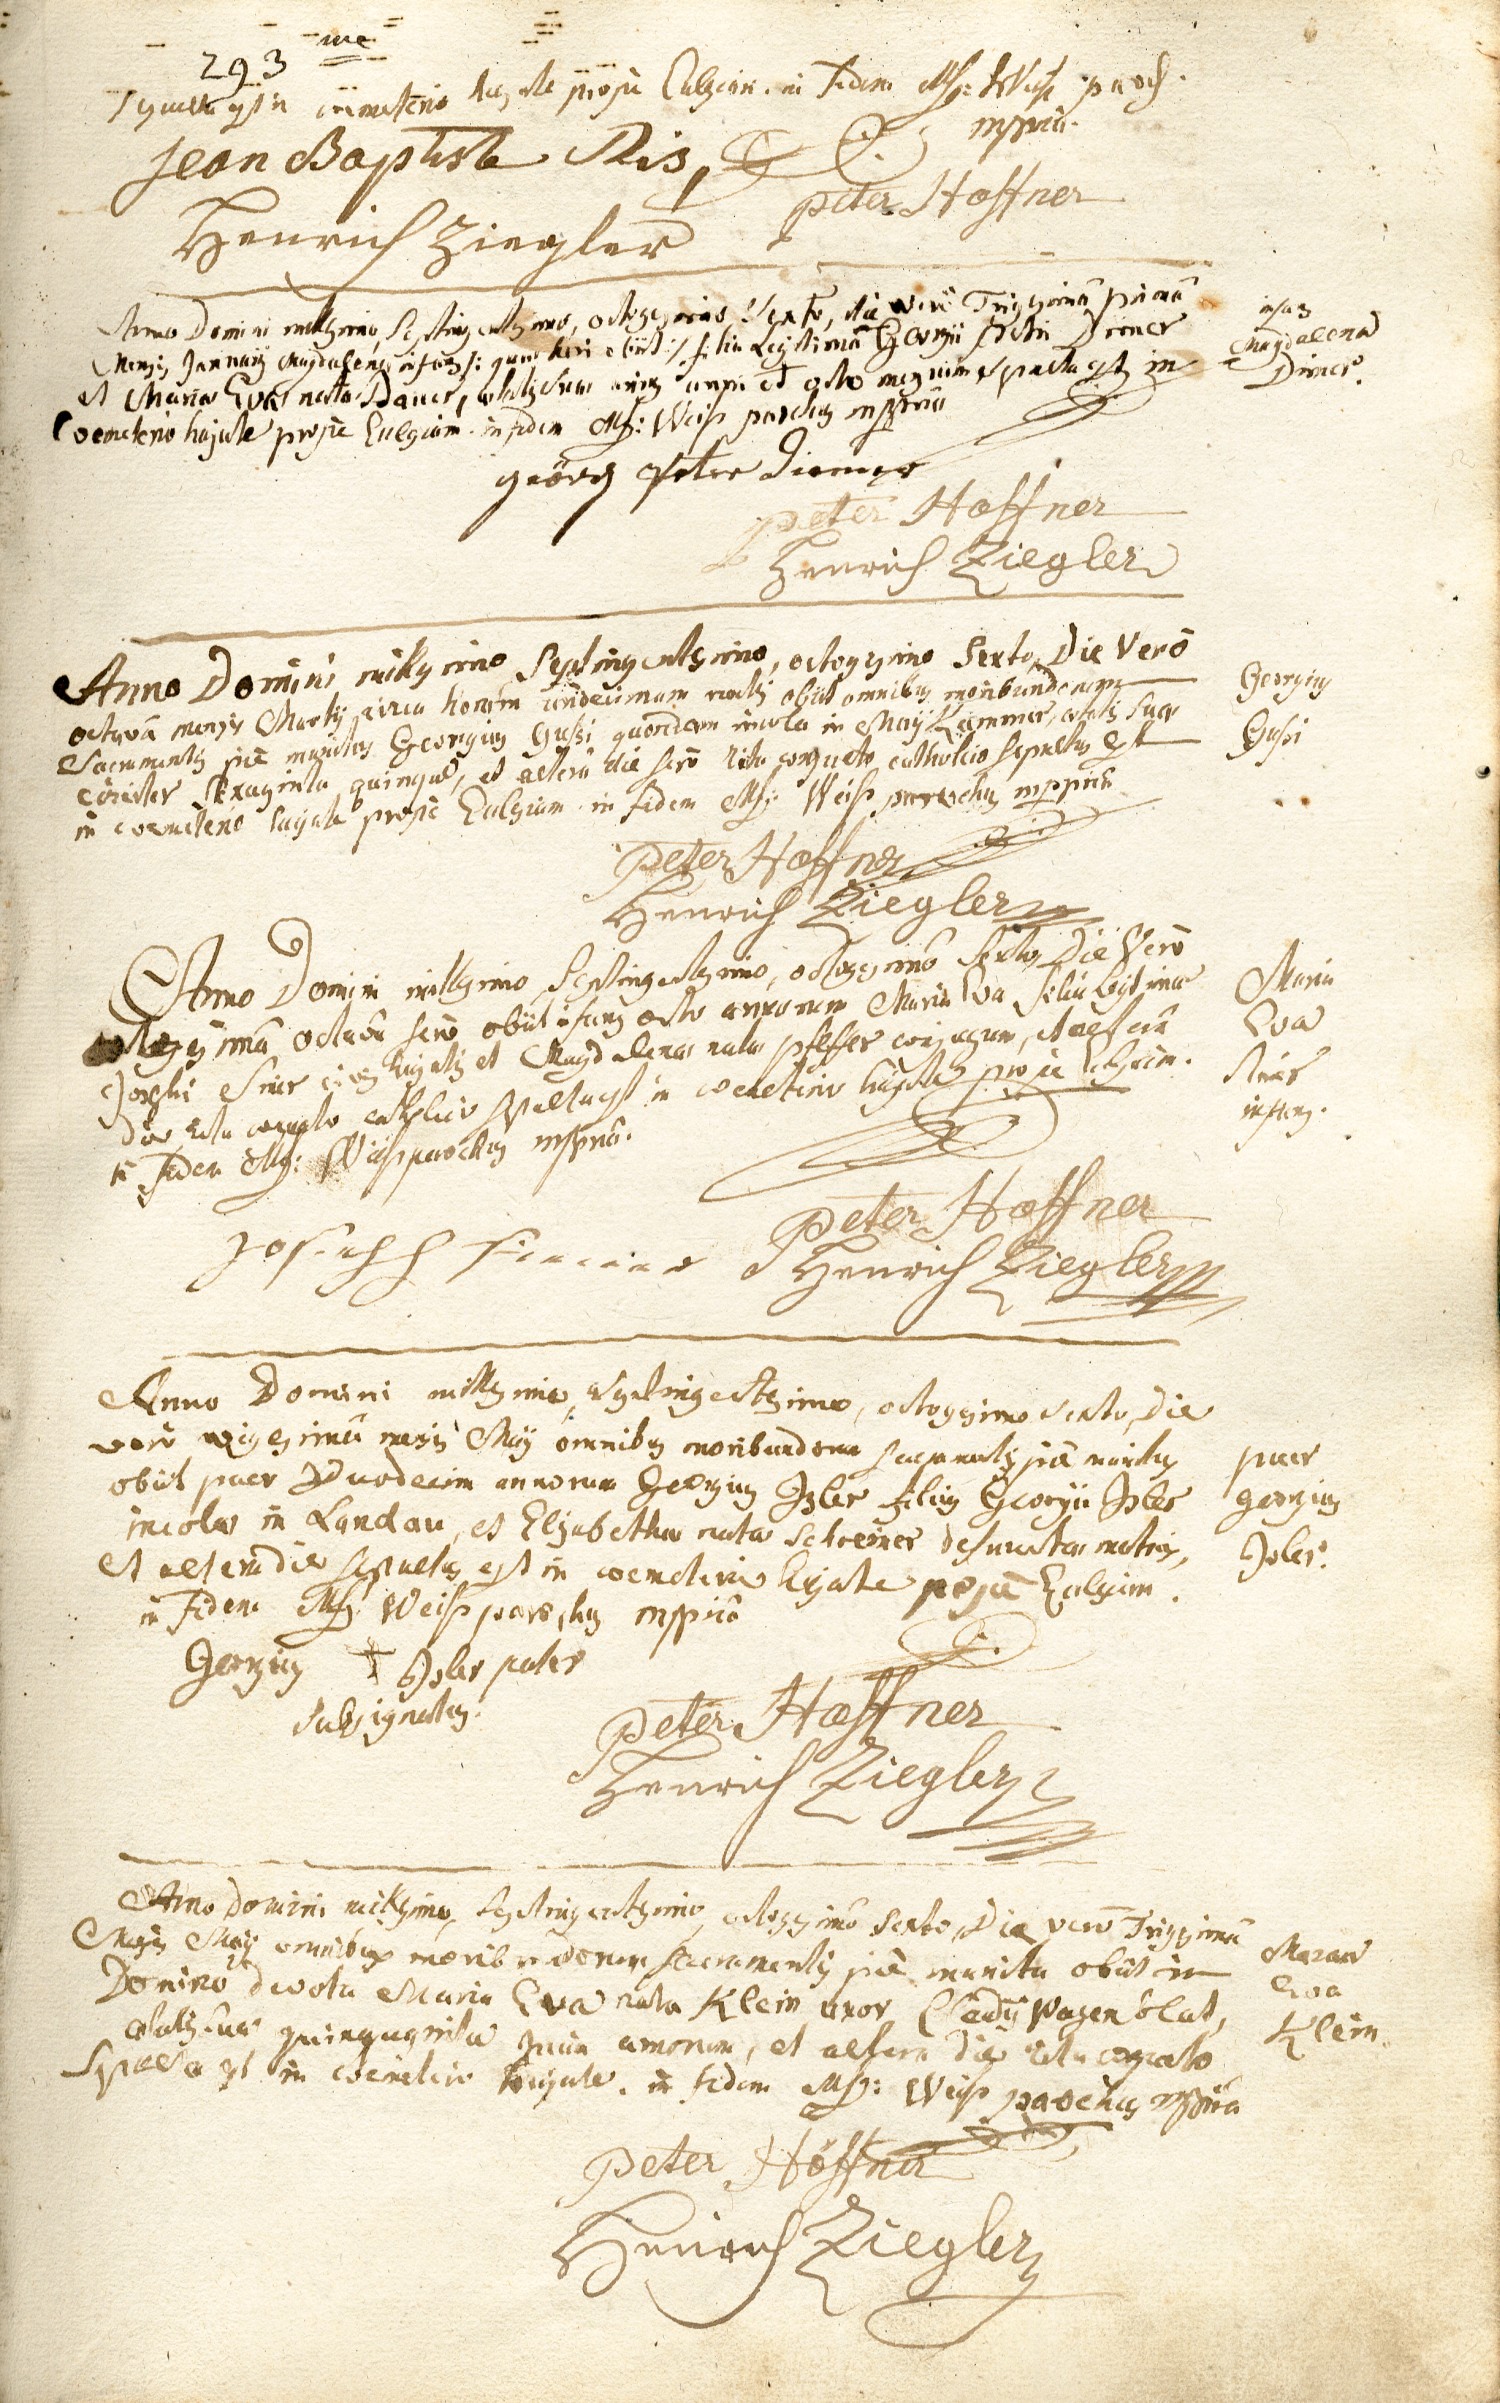 293 me
in coemeterio hujate prope Eclesiam. in fidem Ms: Weis paroch
mppriâ.
Jean Baptiste Ris,
Peter Hoffner
Henrich Ziegler
Anno Domini millesimo, Septingentesimo, octogesimo Sexto, die verò Trigesimâ primâ
Mensis Januarij Magdalena infans /: quae heri obiit :/ filia Legitima Georgii Petri Diemer
et Maria Eva nata Bauer, aetatis suae unius anni et octo mensium sepulta est in
Coemeterio hujate prope Eclesiam in fidem Ms: Weis parochus mppriâ
infans
Magdalena
Diemer.
Geörg Peter Diemer
Peter Hoffner
Henrich Ziegler
Anno Domini millesimo, Septingentesimo, octogesimo Sexto, Die Verò
octavâ mensis Martij circa horam undecimam noctis obiit omnibus moribundorum
Sacramentis piè munitus Georgius Gussi quondam incola in Maÿkammer, aetatis suae
circiter sexaginta quinque, et alterâ die serò ritu consueto catholico sepultus est
in coemeterio hujate prope Eclesiam. in fidem Ms: Weis parochus mppriâ
Georgius
Gussi
Peter Hoffner
Henrich Ziegler
Anno Domini millesimo, Septingentesimo, octogesimo Sexto, Die Verò
octavâ serò obiit infans octo annorum Maria Eva filia Legitima
Josephi et Magdalena nata Pfeffer conjugum, et alterâ
Die ritu consueto catholico sepulta est in coemeterio hujate prope Eclesiam.
in fidem Ms: Weis parochus mppriâ.
Maria
Eva
infans.
Joseph
Peter Hoffner
Henrich Ziegler
Anno Domini millesimo, Septingentesimo, octogesimo Sexto, Die
verò vigesimâ mensis Maÿ omnibus moribundorum sacramentis piè munitus
obiit puer Duodecim annorum Georgius Isler filius Georgii Isler
incola in Landau, et Elisabetha nata Schreiner defunctae matris,
et altera die sepultus est in coemeterio hujate prope Eclesiam.
in fidem Ms: Weis parochus mppriâ
puer
georgius
Isler.
Georgius † Isler pater
subsignatus.
Peter Hoffner
Henrich Ziegler
Anno Domini millesimo, Septingentesimo, octogesimo Sexto, Die verò Trigesimâ
Mensis Maÿ omnibus moribundorum sacramentis piè munita obiit in
Domino devota Maria Eva nata Klein uxor Wagenblat,
aetatis suae quinquaginta annorum, et altera die ritu consueto
Sepulta est in coemeterio hujate. in fidem Ms: Weis parochus mppriâ
Maria
Eva
Klein.
Peter Höffner
Henrich Ziegler